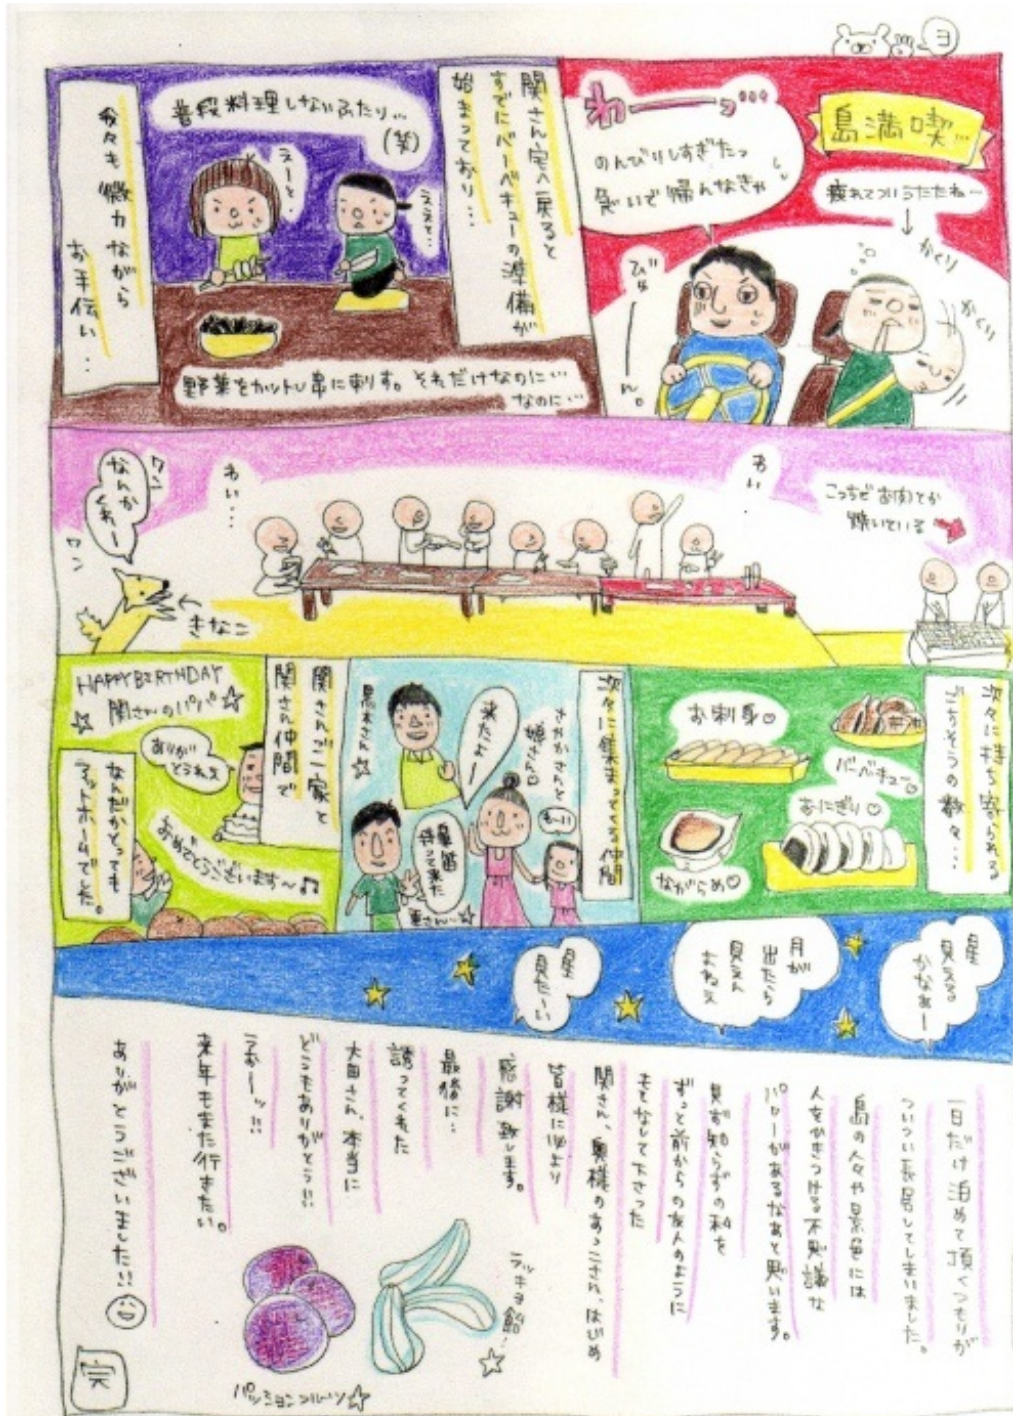 ヨ
島満喫…
疲れてついうたたね〜
かくり
かくり
わーーッ…
のんびりしすぎたっ
急いで帰んなきゃ
びゅーーん。
関さん宅へ戻ると
すでにバーベキューの準備が
始まっており…
普段料理しないふたり…
(笑)
ええと…
えーと…
我々も微力ながら
お手伝い…
野菜をカットし串に刺す。それだけなのに…
なのに…
こっちでお肉とか
焼いている
わい
わい…
ワン
なんか
くれー
ワン
きなこ
次々に持ち寄られる
ごちそうの数々…
お刺身♡
バーベキュー♡
おにぎり♡
ながらめ♡
次々に集まってくる仲間
さやかさんと
娘さん
来たよー
黒木さん☆
わーい
鼻笛
持って来た
関さんご一家と
関さん仲間で
HAPPY BIRTHDAY
関さんのパパ
ありが
とうねぇ
おめでとうございます〜♫
なんだかとっても
アットホームでした。
星
見える
かなぁー
月が
出たら
見えん
よねぇ
星
見たーい
一日だけ泊めて頂くつもりが
ついつい長居してしまいました。
島の人々や景色には
人をひきつける不思議な
パワーがあるなあと思います。
見ず知らずの私を
ずっと前からの友人のように
もてなして下さった
関さん、奥様のあっこさん、はじめ
皆様に心より
感謝致します。
最後に…
誘ってくれた
大田さん、本当に
どうもありがとう!!
うおーッ!!
来年もまた行きたい。
ありがとうございました!!
ラッキョ飴…☆
パッションフルーツ☆
完